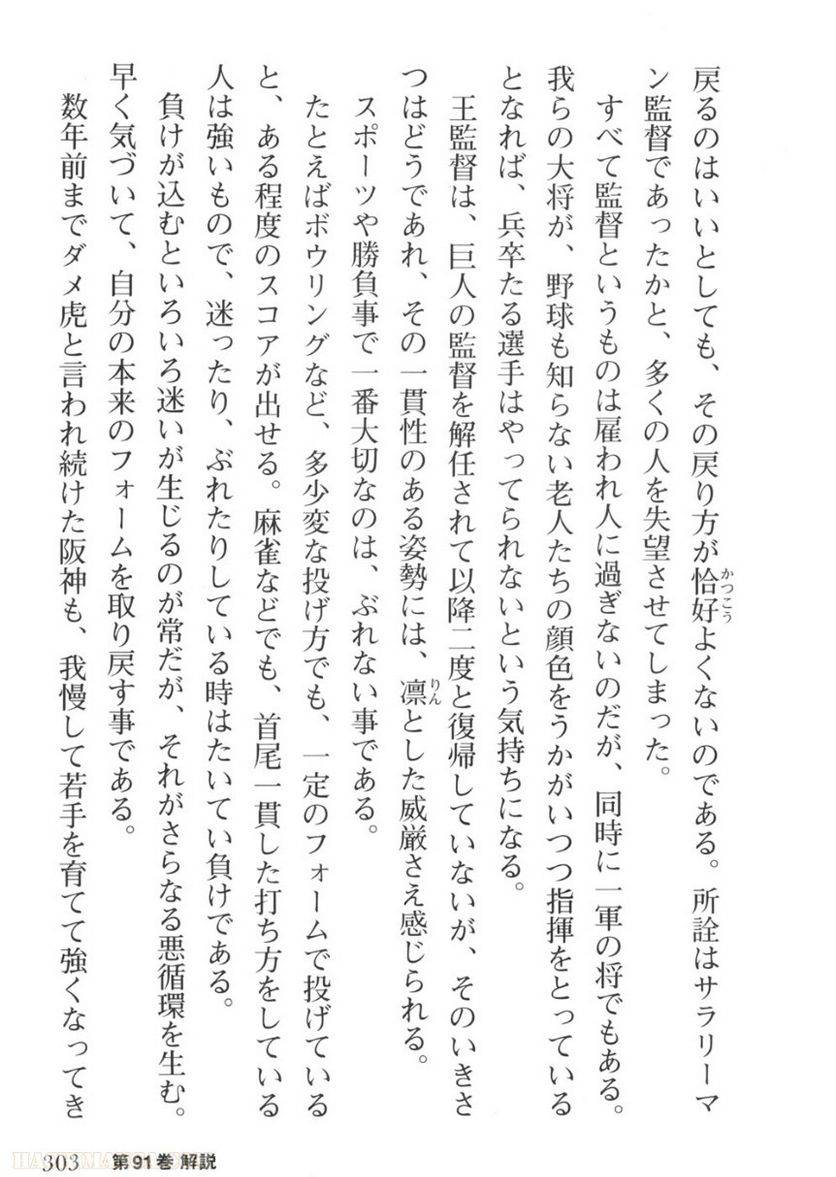 戻るのはいいとしても、その戻り方が恰好よくないのである。所詮はサラリーマ
かつこう
ン監督であったかと、多くの人を失望させてしまった。
すべて監督というものは雇われ人に過ぎないのだが、同時に一軍の将でもある。
我らの大将が、野球も知らない老人たちの顔色をうかがいつつ指揮をとっている
となれば、兵卒たる選手はやってられないという気持ちになる。
王監督は、巨人の監督を解任されて以降二度と復帰していないが、そのいきさ
つはどうであれ、その一貫性のある姿勢には、凛とした威厳さえ感じられる。
りん
スポーツや勝負事で一番大切なのは、ぶれない事である。
たとえばボウリングなど、多少変な投げ方でも、一定のフォームで投げている
と、ある程度のスコアが出せる。麻雀などでも、首尾一貫した打ち方をしている
人は強いもので、迷ったり、ぶれたりしている時はたいてい負けである。
負けが込むといろいろ迷いが生じるのが常だが、それがさらなる悪循環を生む。
早く気づいて、自分の本来のフォームを取り戻す事である。
数年前までダメ虎と言われ続けた阪神も、我慢して若手を育てて強くなってき
303 第91巻 解説